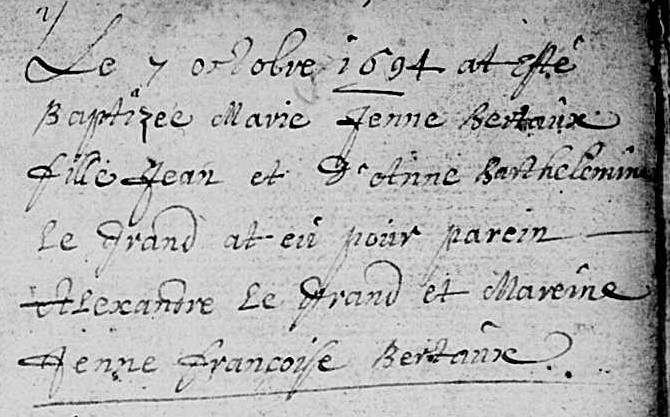 Le 7 octobre 1694 at esté
Baptizée Marie Jenne Bertaux
fille Jean et d'Anne Barthelemine
Le Grand at eü pour parein
Alexandre Le Grand et Mareine
Jenne françoise Bertaux.